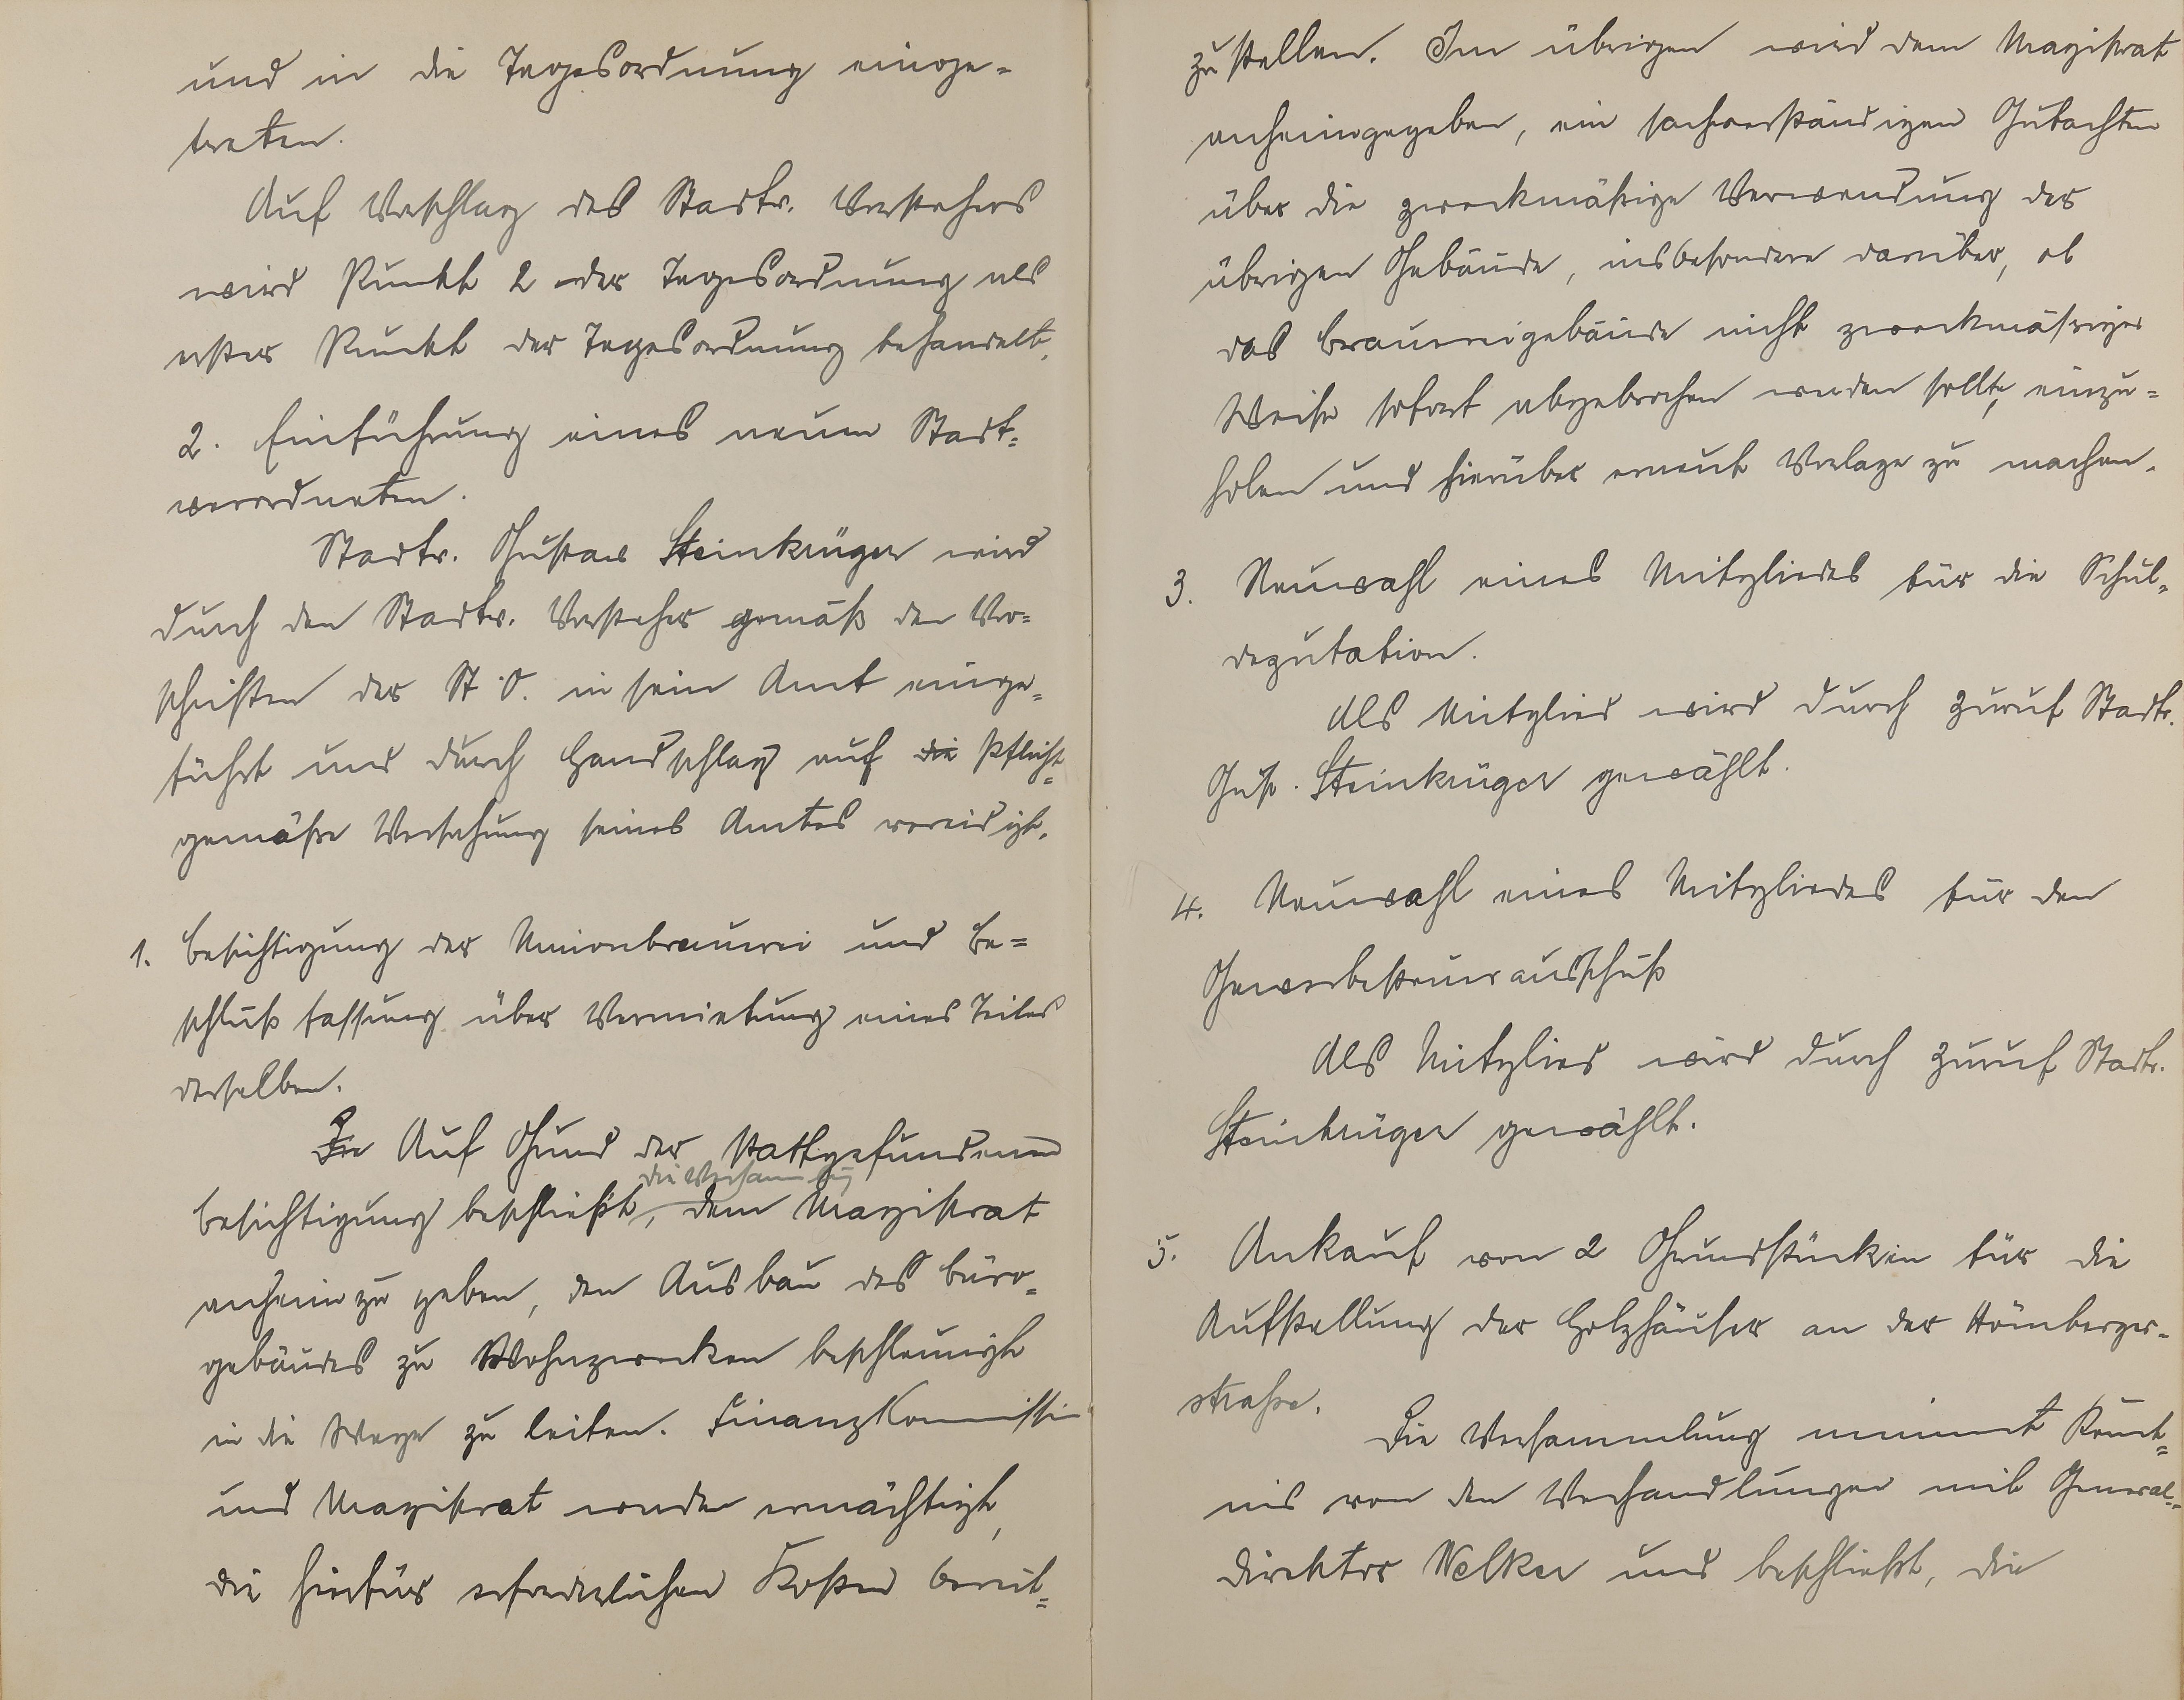 und in die Tagesordnung einge-
treten.
Auf Vorschlag des Stadtv. Vorstehers
wird Punkt 2 der Tagesordnung als
erster Punkt der Tagesordnung behandelt.
2. Einführung eines neuen Stadt-
verordneten.
Stadtv. Gustav Steinkrüger wird
durch den Stadtv. Vorsteher gemäß den Vor-
schriften der St. O. in sein Amt einge-
führt und durch Handschlag auf die Pflicht-
gemäße Versehung seines Amtes vereidigt.
1. Besichtigung der Unionbrauerei und Be-
schlußfassung über Vermietung eines Teiles
derselben.
Die Auf Grund der stattgefundenen
die Versammlung
Besichtigung beschließt, dem Magistrat
anheim zu geben, den Ausbau des Büro-
gebäudes zu Wohnzwecken beschleunigt
in die Wege zu leiten. Finanzkommission
und Magistrat werden ermächtigt,
die hierfür erforderlichen Kosten bereit-
zustellen. Im übrigen wird dem Magistrat
anheimgegeben, ein sachverständigen Gutachten
über die zweckmäßige Verwendung der
übrigen Gebäude, insbesondere darüber, ob
das Brauereigebäude nicht zweckmäßiger
Weise sofort abgebrochen werden sollte, einzu-
holen und hierüber erneut Vorlage zu machen.
3. Neuwahl eines Mitgliedes für die Schul-
deputation.
Als Mitglied wird durch Zuruf Stadtv.
Gust. Steinkrüger gewählt.
4. Neuwahl eines Mitgliedes für den
Gewerbesteuerausschuß
Als Mitglied wird durch Zuruf Stadtv.
Steinkrüger gewählt.
5. Ankauf von 2 Grundstücken für die
Aufstellung der Holzhäuser an der Hömberger-
straße.
Die Versammlung nimmt Kennt-
nis von den Verhandlungen mit General-
direktor Welker und beschließt, die